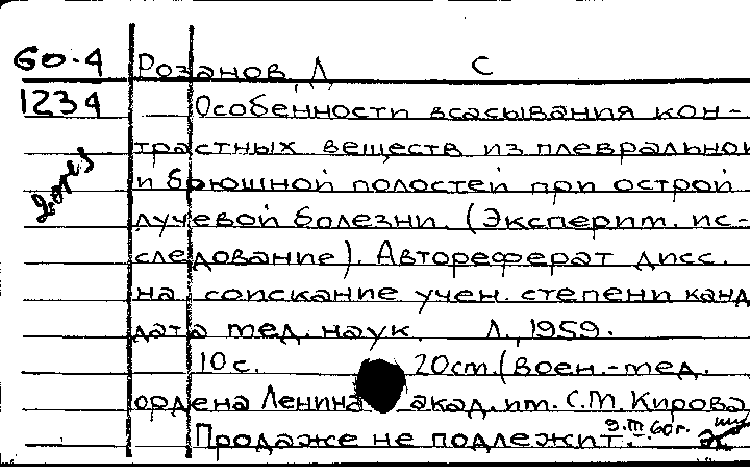 60-4 Розанов, Л С
1234 Особенности всасывания кон-
трастных веществ из плевральной
2 отз и брюшной полостей при острой
лучевой болезни. (Эксперим. ис-
следование). Автореферат дисс.
на соискание учен. степени канд
дата мед. наук. Л., 1959.
10 с. 20 см. (Воен.-мед.
ордена Ленина акад. им. С.М. Кирова
Продаже не подлежит. 9.III 60 г.